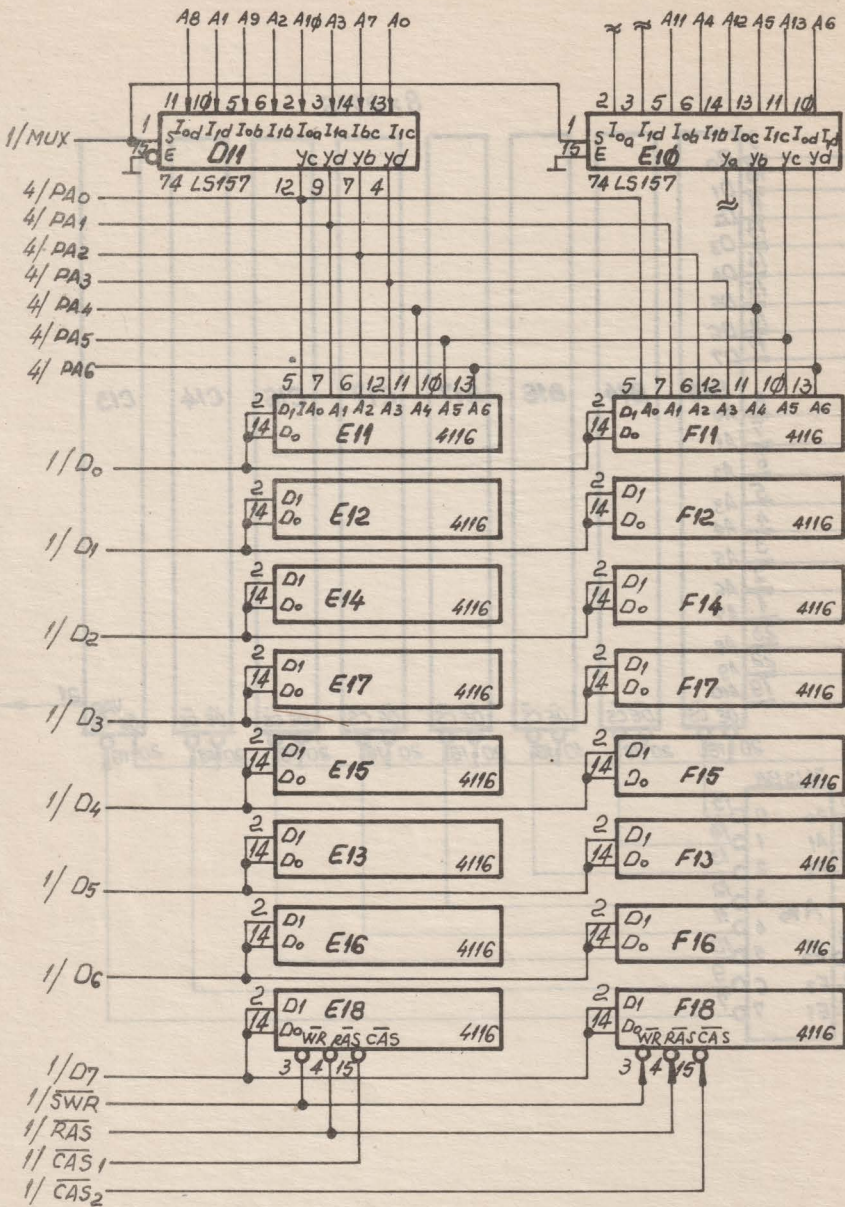 A8 A1 A9 A2 A1Ø A3 A7 A0
≈ ≈ A11 A4 A12 A5 A13 A6
11 1Ø 5 6 2 3 14 13
2 3 5 6 14 13 11 1Ø
1/MUX
1 S I0d I1d I0b I1b I0a I1a Ibc I1c
15 E D11 yc yd yb yd
74 LS157 12 9 7 4
1 S I0a I1d I0b I1b I0c I1c I0d I1d
15 E E1Ø ya yb yc yd
74 LS157
≈
4/PA0
4/PA1
4/PA2
4/PA3
4/PA4
4/PA5
4/PA6
5 7 6 12 11 1Ø 13
5 7 6 12 11 1Ø 13
2 D1 IA0 A1 A2 A3 A4 A5 A6
14 D0 E11 4116
2 D1 A0 A1 A2 A3 A4 A5 A6
14 D0 F11 4116
1/D0
2 D1
14 D0 E12 4116
2 D1
14 D0 F12 4116
1/D1
2 D1
14 D0 E14 4116
2 D1
14 D0 F14 4116
1/D2
2 D1
14 D0 E17 4116
2 D1
14 D0 F17 4116
1/D3
2 D1
14 D0 E15 4116
2 D1
14 D0 F15 4116
1/D4
2 D1
14 D0 E13 4116
2 D1
14 D0 F13 4116
1/D5
2 D1
14 D0 E16 4116
2 D1
14 D0 F16 4116
1/D6
2 D1 E18
14 D0 W̅R̅ R̅A̅S̅ C̅A̅S̅ 4116
2 D1 F18
14 D0 W̅R̅ R̅A̅S̅ C̅A̅S̅ 4116
1/D7
3 4 15
3 4 15
1/S̅W̅R̅
1/R̅A̅S̅
1/C̅A̅S̅1
1/C̅A̅S̅2